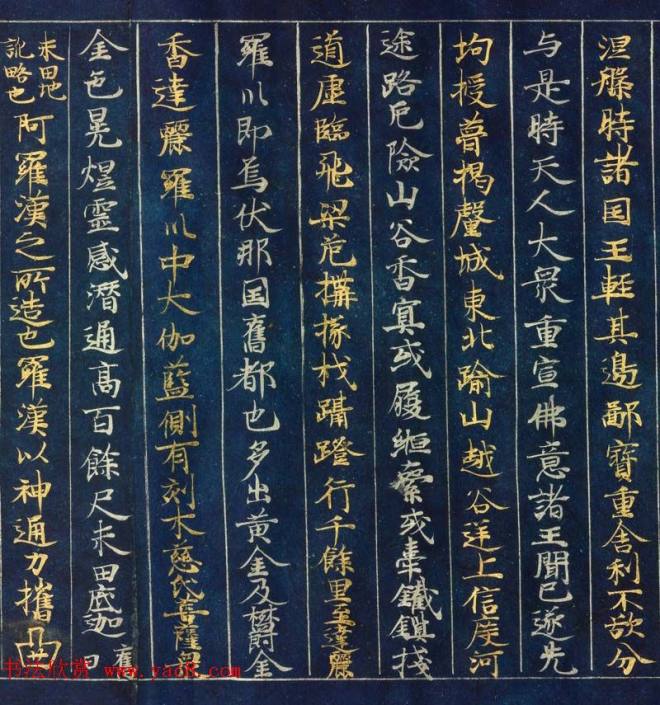 涅槃時諸国王輕其邊鄙寶重舎利不欲分
与是時天人大衆重宣佛意諸王聞已遂先
均授瞢揭釐城東北踰山越谷逆上信度河
途路危險山谷杳冥或履縆索或牽鐵鎖棧
道虛臨飛梁危構椽杙躡蹬行千餘里至達麗
羅川即烏仗那国舊都也多出黄金及欝金
香達麗羅川中大伽藍側有刻木慈氏菩薩像
金色晃煜靈感潛通高百餘尺末田底迦舊曰
末田地
訛略也
阿羅漢之所造也羅漢以神通力攜
书法欣赏 www.yac8.com